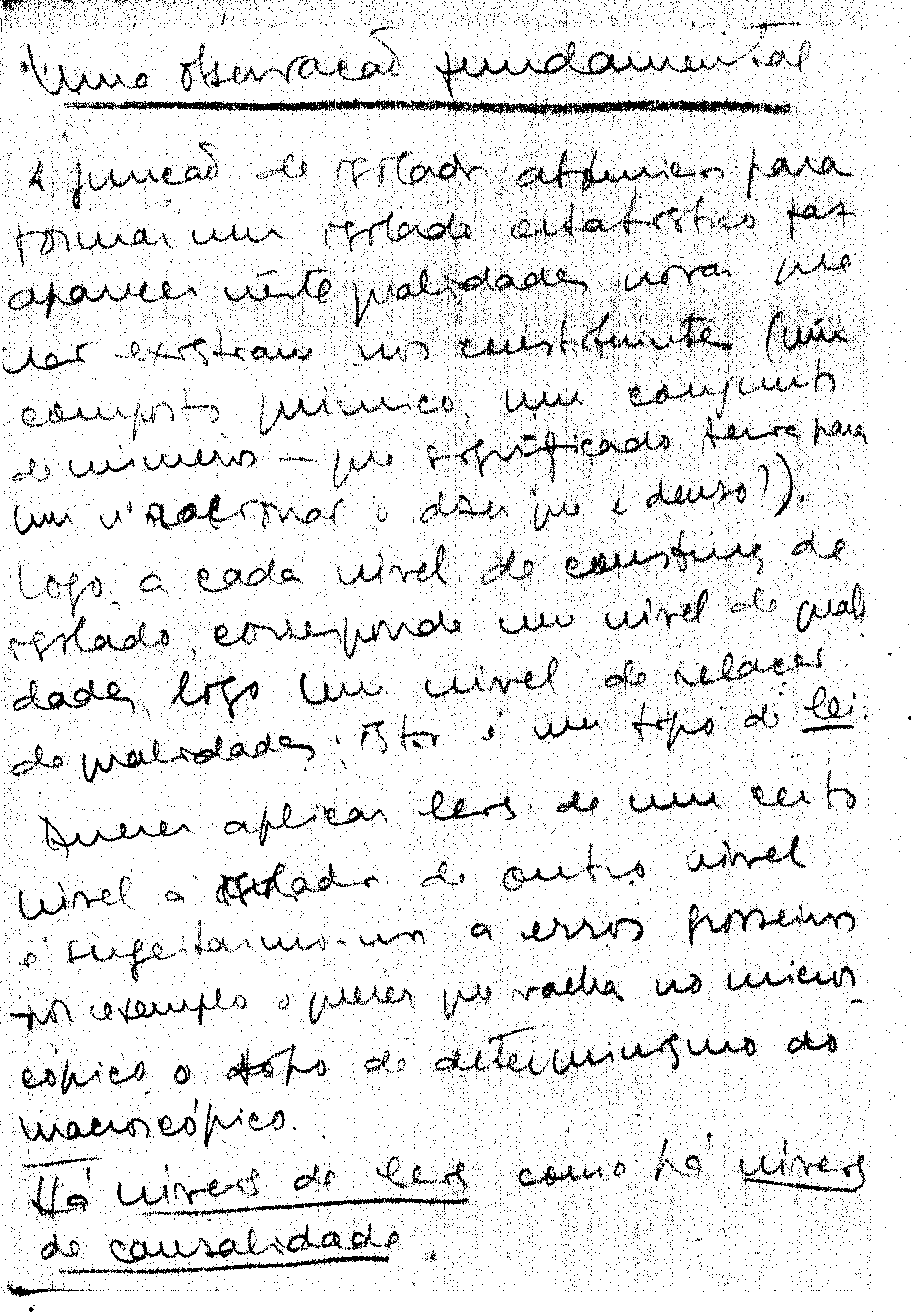 Uma observação fundamental
A junção de isolados atómicos para
formar um isolado estatístico faz
aparecer nêste qualidades novas que
não existiam nos constituintes (um
composto químico, um conjunto
de números — que significado teria para
um nº racional o dizer que é denso?).
Logo, a cada nível de constituição de
isolado, corresponde um nível de quali
dades, logo um nível de relações
de qualidades; isto é um tipo de lei.
Querer aplicar leis de um certo
nível a isolados de outro nível
é sugeitarmo-nos a erros grosseiros
por exemplo o querer que valha no micros-
cópico o tipo de determinismo do
macroscópico.
Há níveis de leis como há níveis
de causalidade.